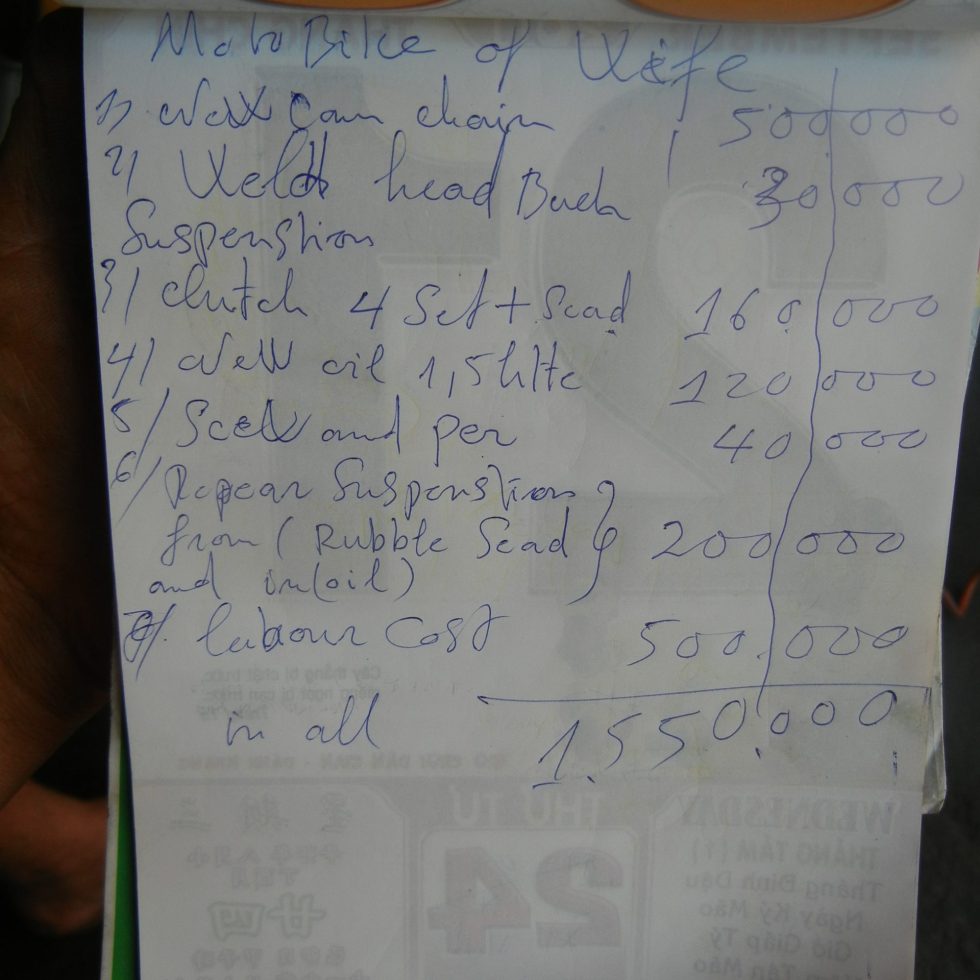 MotoBike of Wife
1) New Cam chain 500 000
2) Weld head Back 30 000
Suspenstion
3) Clutch 4 Set + Sead 160 000
4) New oil 1,5 litte 120 000
5/ and per 40 000
6/ Repear Suspenstion
from ( Rubble Sead 200 000
and in (oil)
7/. labour Cost 500.000
in all 1.550.000
THỨ TƯ
WEDNESDAY
24
THÁNG TÁM (T)
Tháng Đinh Dậu
Ngày Kỷ Mão
Giờ Giáp Tý